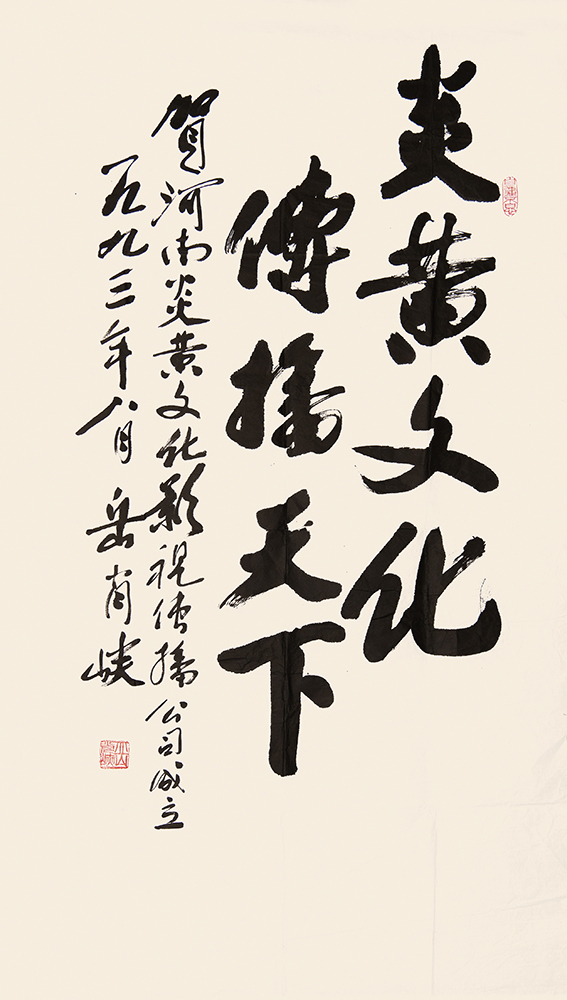 炎黄文化
傳播天下
贺河南炎黄文化影視传播公司成立
一九九三年八月 岳肖峡